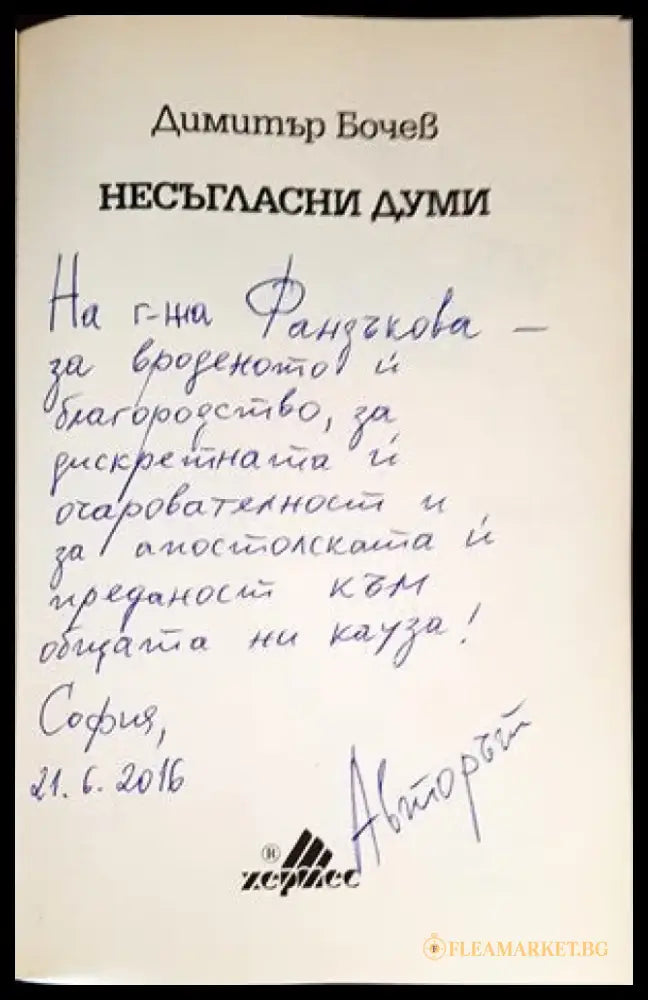 Димитър Бочев
НЕСЪГЛАСНИ ДУМИ
На г-жа Фандъкова –
за вроденото ѝ
благородство, за
дискретната ѝ
очарователност и
за апостолската ѝ
преданост към
общата ни кауза!
София,
21.6.2016
Авторът
хермес
FLEAMARKET.BG